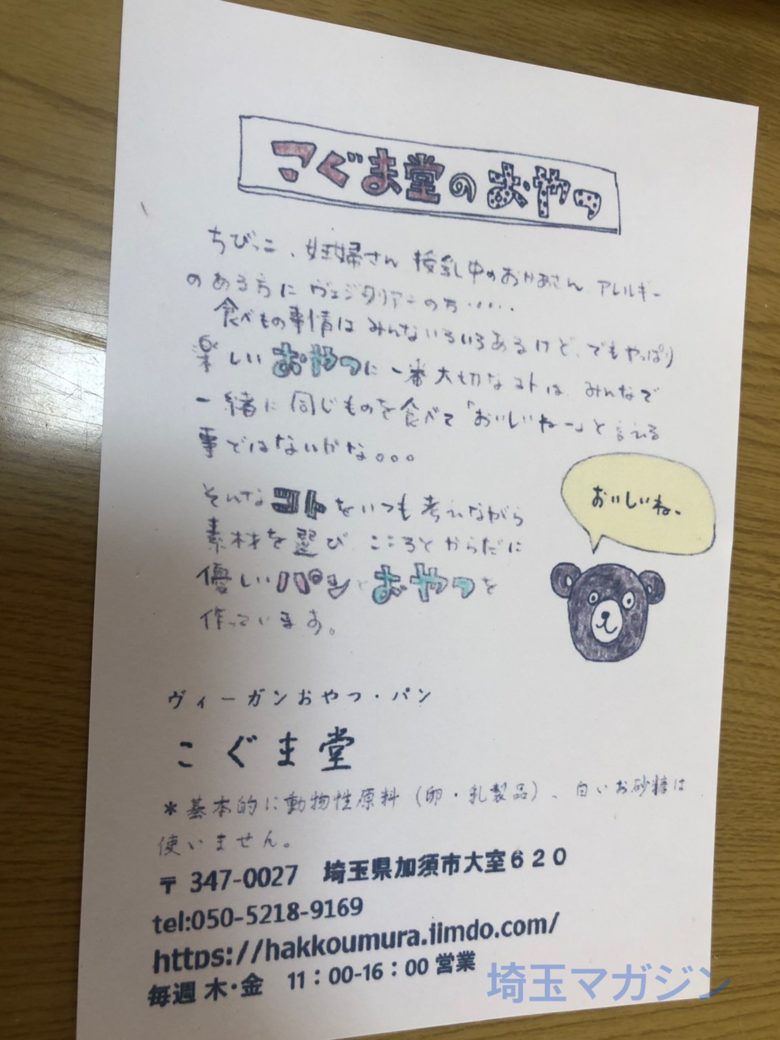 こぐま堂のおやつ
ちびっこ、妊婦さん 授乳中のおかあさん アレルギー
のある方に ヴェジタリアンの方・・・・
食べもの事情は みんないろいろあるけど、でもやっぱり
楽しい おやつに 一番大切なコトは みんなで
一緒に 同じものを食べて「おいしいねー」と言える
事ではないかな。。。
そんなコトをいつも考えながら
素材を選び、こころとからだに
優しいパンとおやつを
作っています。
おいしいね〜
ヴィーガンおやつ・パン
こぐま堂
＊基本的に動物性原料（卵・乳製品）、白いお砂糖は
使いません。
〒 347-0027 埼玉県加須市大室６２０
tel:050-5218-9169
https://hakkoumura.jimdo.com/
毎週 木・金 11：00-16：00 営業
埼玉マガジン